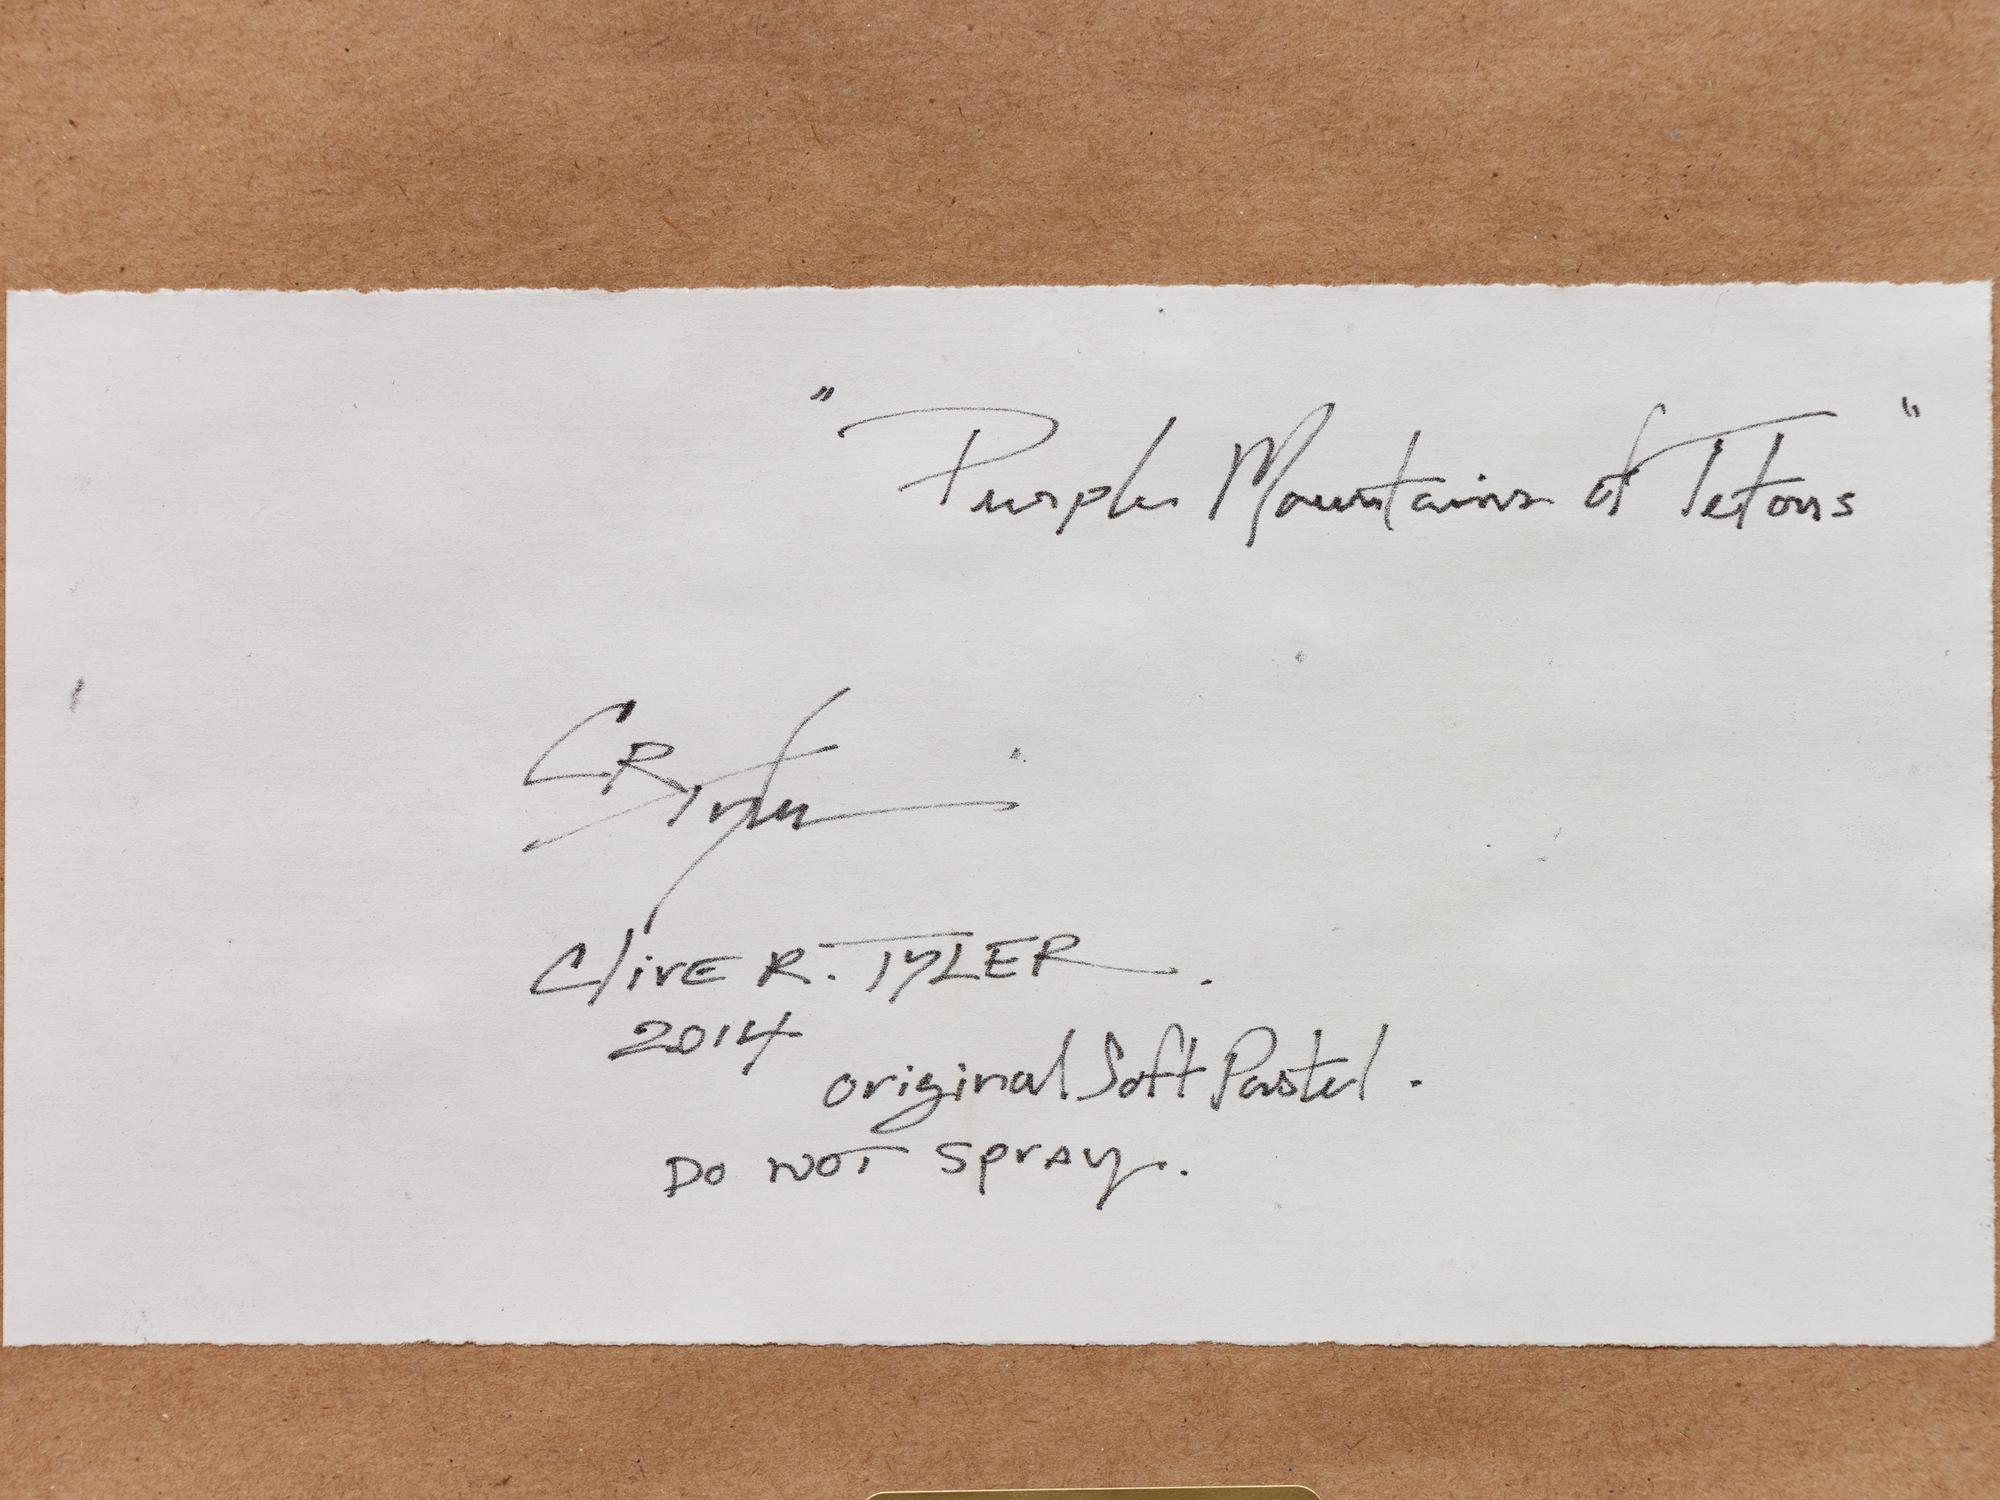 "Purple Mountains of Tetons"
CR Tyler
Clive R. TYLER.
2014
original Soft Pastel.
Do NOT Spray.